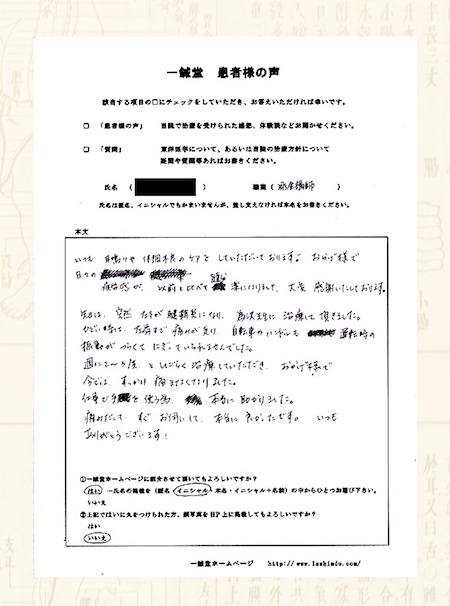 一鍼堂 患者様の声
該当する項目の□にチェックをしていただき、お答えいただければ幸いです。
□ 「患者様の声」 当院で治療を受けられた感想、体験談などお聞かせください。
□ 「質問」 東洋医学について、あるいは当院の治療方針について
疑問や質問等あればお書きください。
氏名 ( ) 職業 ( 講師 )
氏名は匿名、イニシャルでもかまいませんが、差し支えなければ本名をお書きください。
本文
いつも 耳鳴りや 体調不良の ケアを していただいております。 おかげ様で
日々の
疲労感が、以前と比べて 楽になりまして、大変 感謝いたしております。
先日は、突然 左手が 腱鞘炎になり、 治療して 頂きました。
ひどい時は、左肩まで 痛みが走り、自転車の ハンドルも 運転時の
振動が つらくて にぎっていられませんでした。
週に2〜3度、と ひどく 治療していただき、おかげ様で
今では、すっかり 痛まなくなりました。
仕事で手を使う為、 本当に 助かりました。
痛みだして、すぐ お伺いして、本当に 良かったです。 いつも
ありがとうございます!
①一鍼堂ホームページに紹介させて頂いてもよろしいですか?
はい →氏名の掲載を(匿名・イニシャル・本名・イニシャル+名前)の中からひとつお選び下さい。
いいえ
②上記ではいに丸をつけられた方、顔写真をHP上に掲載してもよろしいですか?
はい
いいえ
一鍼堂ホームページ http://www.1sshindo.com/